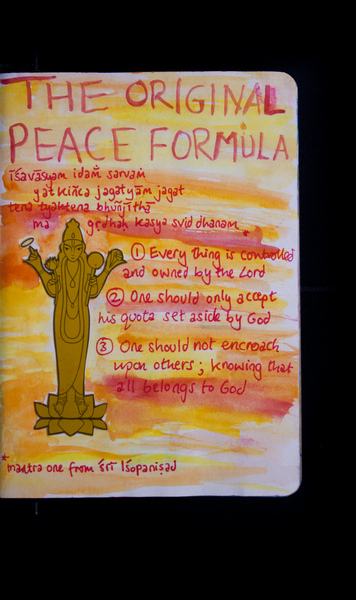 THE ORIGINAL
PEACE FORMULA
īśāvāsyam idaṁ sarvaṁ
yat kiñca jagatyāṁ jagat
tena tyaktena bhuñjīthā
ma gṛdhaḥ kasya svid dhanam *
① Every thing is controlled
and owned by the Lord
② One should only accept
his quota set aside by God
③ One should not encroach
upon others; knowing that
all belongs to God
*mantra one from śrī Iśopaniṣad